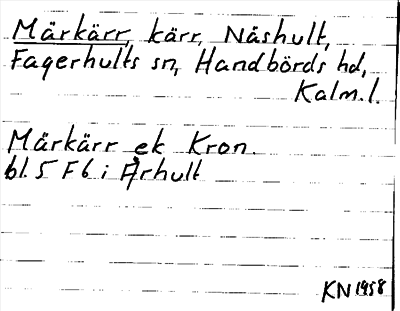 Märkärr, kärr, Näshult,
Fagerhults sn, Handbörds hd,
Kalm. l.
Märkärr ek Kron.
bl. 5 F6 i Århult
KN 1958